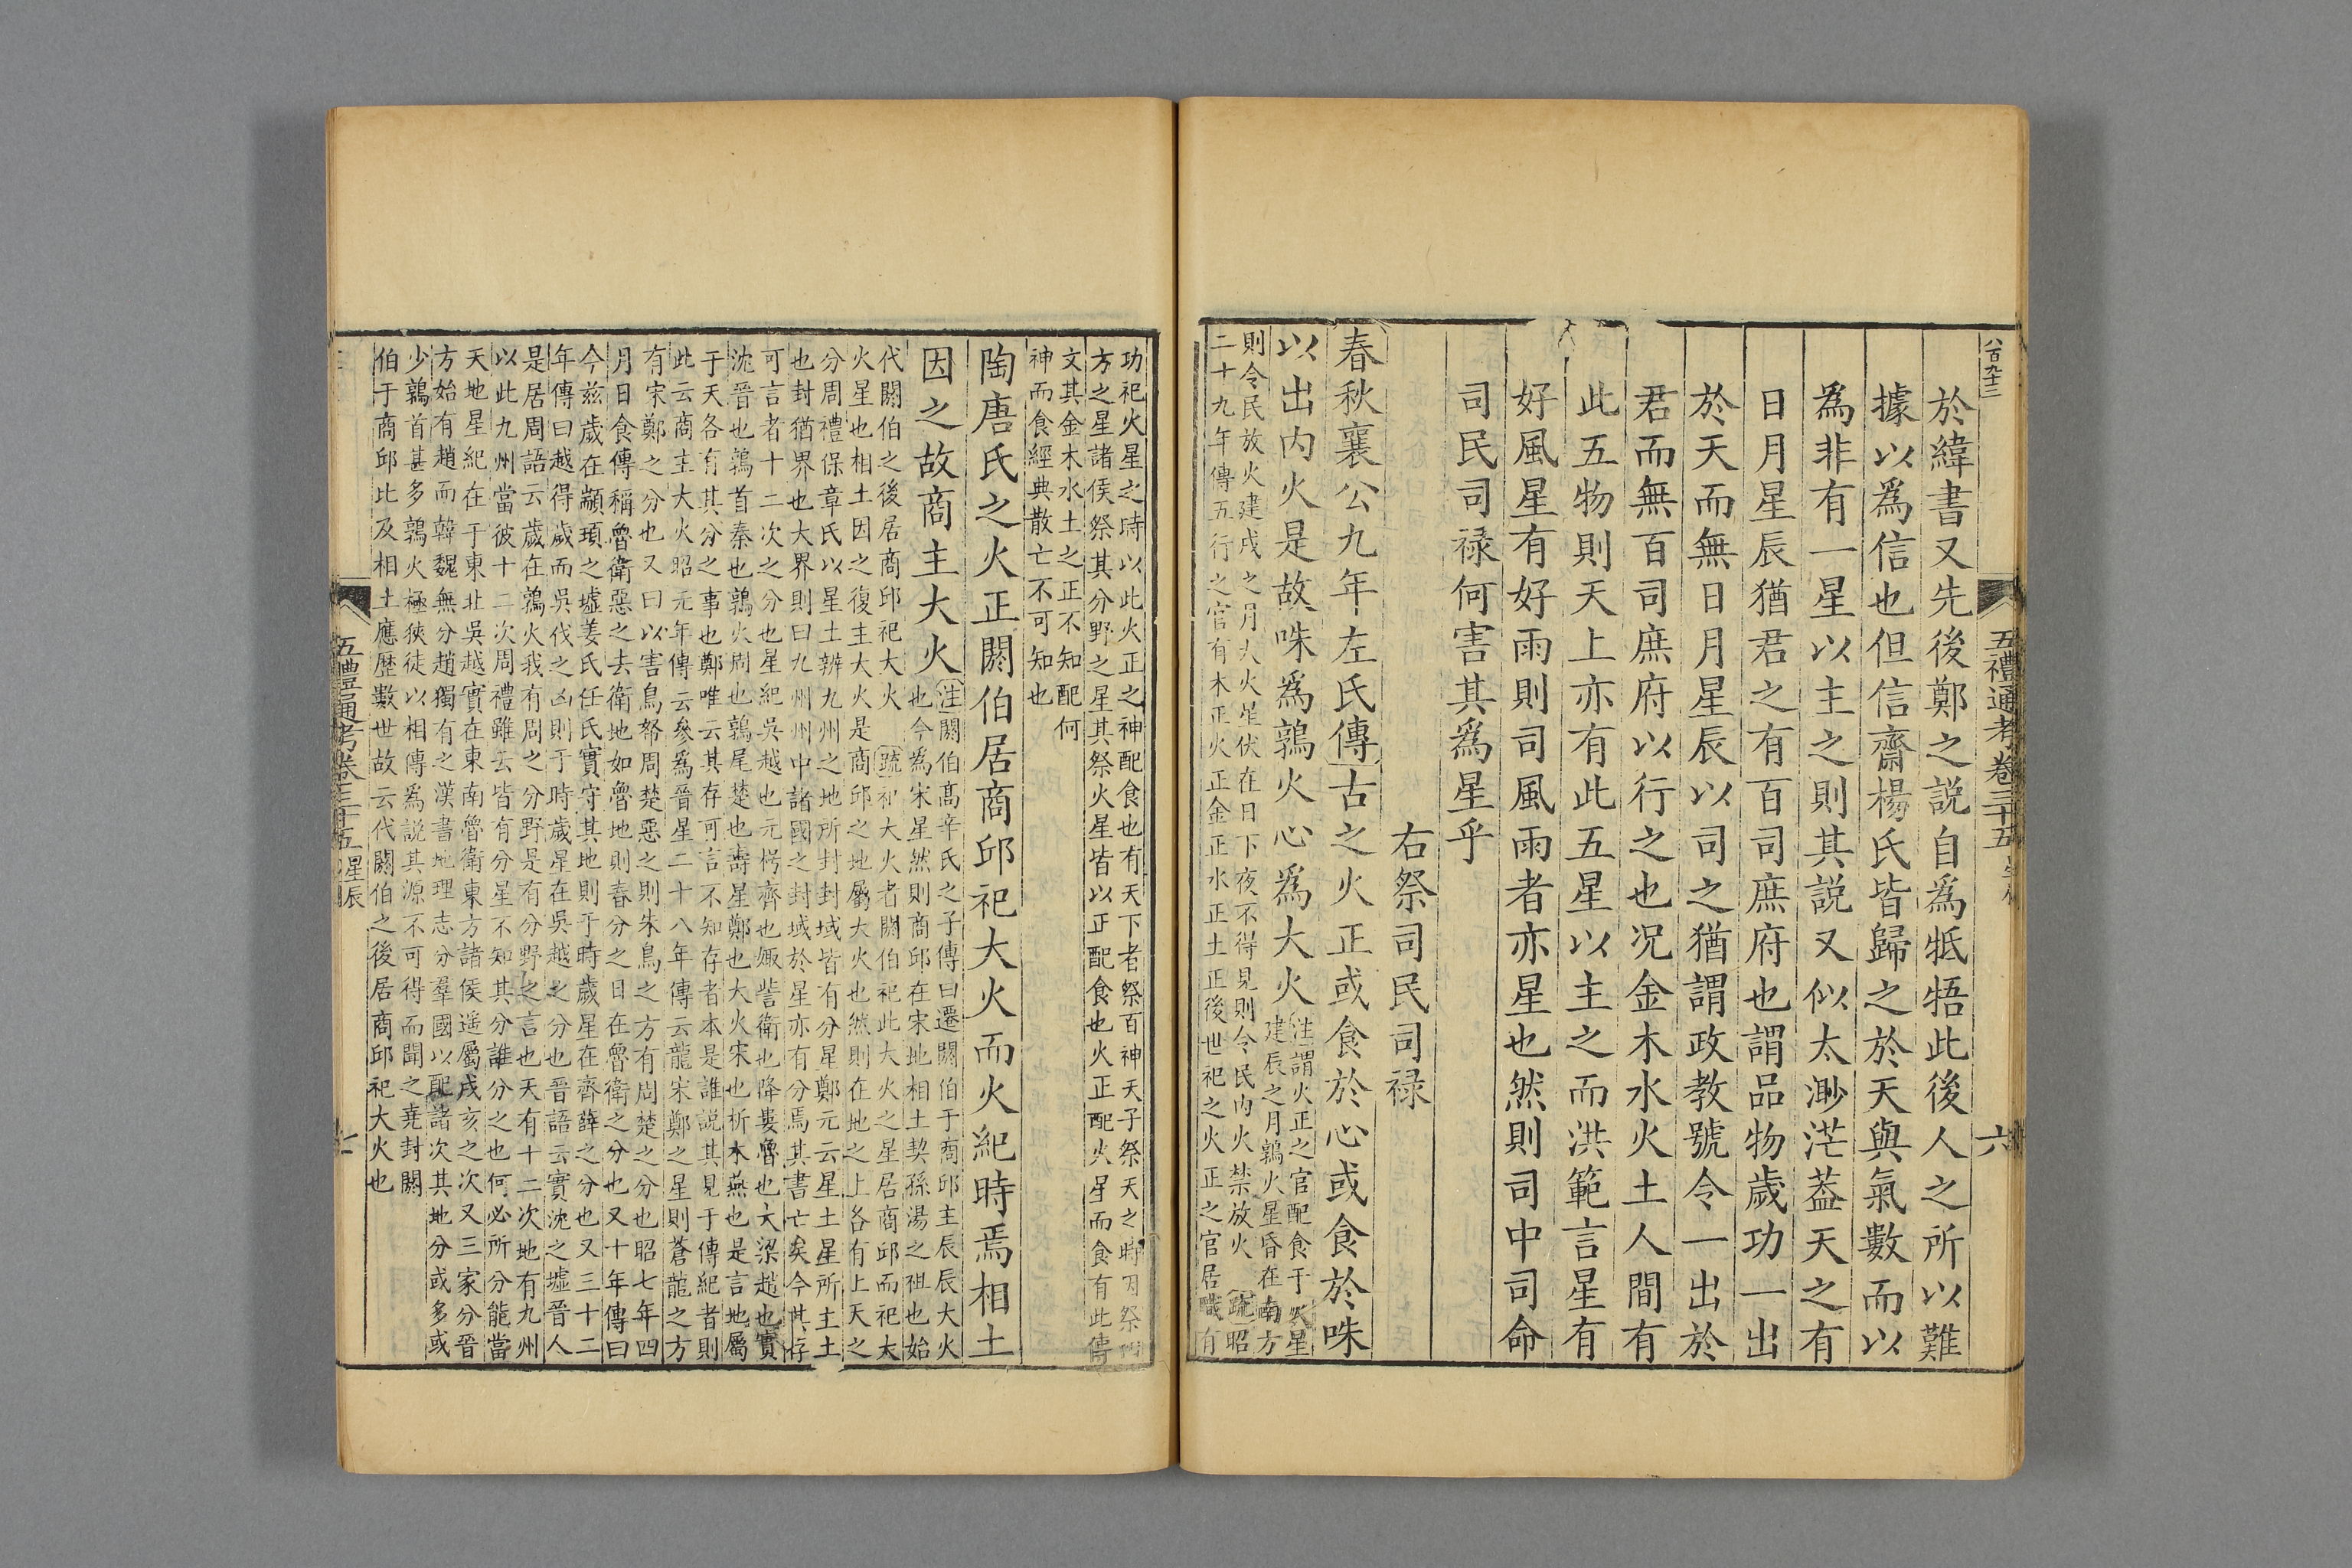 八百九十三
五禮通考卷三十五
六
於緯書又先後鄭之説自爲牴牾此後人之所以難
據以爲信也但信齋楊氏皆歸之於天與氣數而以
爲非有一星以主之則其説又似太渺茫葢天之有
日月星辰猶君之有百司庶府也謂品物歲功一出
於天而無日月星辰以司之猶謂政教號令一出於
君而無百司庶府以行之也况金木水火土人間有
此五物則天上亦有此五星以主之而洪範言星有
好風星有好雨則司風雨者亦星也然則司中司命
司民司禄何害其爲星乎
右祭司民司禄
春秋襄公九年左氏傳古之火正或食於心或食於咮
以出内火是故咮爲鶉火心爲大火
注謂火正之官配食于火星
建辰之月鶉火星昏在南方
則令民放火建戌之月大火星伏在日下夜不得見則令民内火禁放火
疏昭
二十九年傳五行之官有木正火正金正水正土正後世祀之火正之官居職有
功祀火星之時以此火正之神配食也有天下者祭百神天子祭天之時因祭四
方之星諸侯祭其分野之星其祭火星皆以正配食也火正配火星而食有此傳
文其金木水土之正不知配何
神而食經典散亡不可知也
陶唐氏之火正閼伯居商邱祀大火而火紀時焉相土
因之故商主大火
注閼伯髙辛氏之子傳曰遷閼伯于商邱主辰辰大火
也今爲宋星然則商邱在宋地相土契孫湯之祖也始
代閼伯之後居商邱祀大火
疏祀大火者閼伯祀此大火之星居商邱而祀大
火星也相土因之復主大火是商邱之地屬大火也然則在地之上各有上天之
分周禮保章氏以星土辨九州之地所封封域皆有分星鄭元云星土星所主土
也封猶界也大界則曰九州州中諸國之封域於星亦有分焉其書亡矣今其存
可言者十二次之分也星紀吳越也元枵齊也娵訾衛也降婁魯也大梁趙也實
沈晉也鶉首秦也鶉火周也鶉尾楚也壽星鄭也大火宋也析木燕也是言地屬
于天各有其分之事也鄭唯云其存可言不知存者本是誰説其見于傳紀者則
此云商主大火昭元年傳云參爲晉星二十八年傳云龍宋鄭之星則蒼龍之方
有宋鄭之分也又曰以害鳥帑周楚惡之則朱鳥之方有周楚之分也昭七年四
月日食傳稱魯衛惡之去衛地如魯地則春分之日在魯衛之分也又十年傳曰
今兹歲在顓頊之墟姜氏任氏實守其地則于時歲星在齊薛之分也又三十二
年傳曰越得歲而吳伐之凶則于時歲星在吳越之分也晉語云實沈之墟晉人
是居周語云歲在鶉火我有周之分野是有分野之言也天有十二次地有九州
以此九州當彼十二次周禮雖云皆有分星不知其分誰分之也何必所分能當
天地星紀在于東北吳越實在東南魯衛東方諸侯遥屬戌亥之次又三家分晉
方始有趙而韓魏無分趙獨有之漢書地理志分羣國以配諸次其地分或多或
少鶉首甚多鶉火極狹徒以相傳爲説其源不可得而聞之堯封閼
伯于商邱比及相土應歷數世故云代閼伯之後居商邱祀大火也
五禮通考卷三十五 星辰